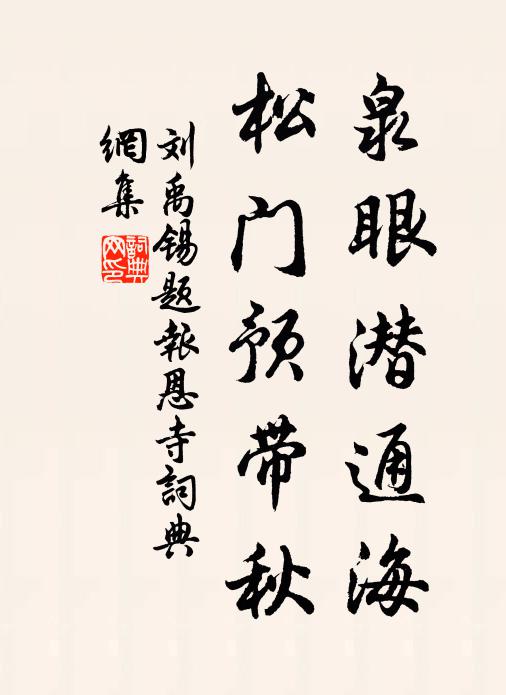 泉眼潜通海
松门预带秋
刘禹锡题報恩寺詞典
網集
詞典
网印